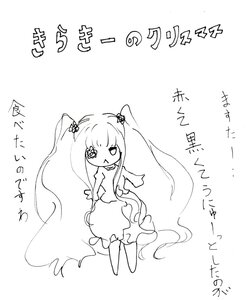 きらきーのクリスマス
ますたー
赤くて黒くてうにゅーっとしたのが
食べたいのですわ